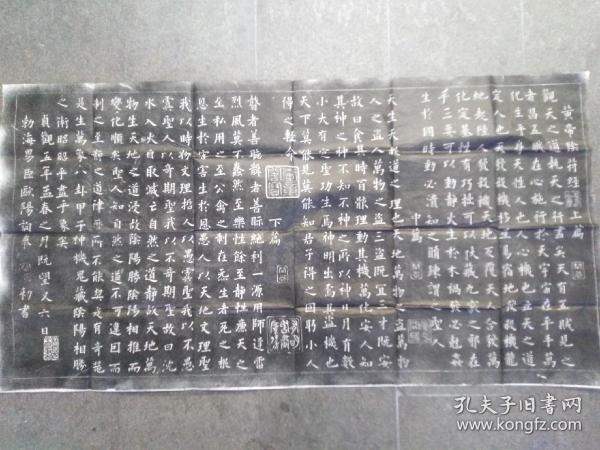 黃帝陰符經 上篇
觀天之道執天之行盡矣天有五賊見之
者昌五賊在心施行於天宇宙在乎手萬
化生乎身天性人也人心機也立天之道
定人也天發殺機移星易宿地發殺機龍
蛇起陸人發殺機天地反覆天人合發萬
化定基性有巧拙可以伏藏九竅之邪在
乎三要可以動靜火生於木禍發必剋姦
生於國時動必潰知之脩鍊謂之聖人
中篇
天生天殺道之理也天地萬物之盜萬物
人之盜人萬物之盜三盜既宜三才既安
故曰食其時百骸理動其機萬化安人知
其神之神不知不神之所以神日月有數
小大有定聖功生焉神明出焉其盜機也
天下莫能見莫能知君子得之固躬小人
得之輕命
下篇
瞽者善聽聾者善視絕利一源用師
烈風莫不蠢然至樂性餘至靜性廉天之
至私用之至公禽之制在炁生者死之根
恩生於害害生於恩愚人以天地文理聖
我以時物文理哲人以愚虞聖我以不愚
虞聖人以奇期聖我以不奇期聖故曰沈
水入火自取滅亡自然之道靜故天地萬
物生天地之道浸故陰陽勝陰陽相推而
變化順矣聖人知自然之道不可違因而
制之至靜之道律曆所不能契爰有奇器
是生萬象八卦甲子神機鬼藏陰陽相勝
之術昭昭乎盡乎象矣
貞觀五年孟春之月既望又六日
勃海男臣歐陽詢奉 勅書
孔夫子旧书网
www.kongfz.com